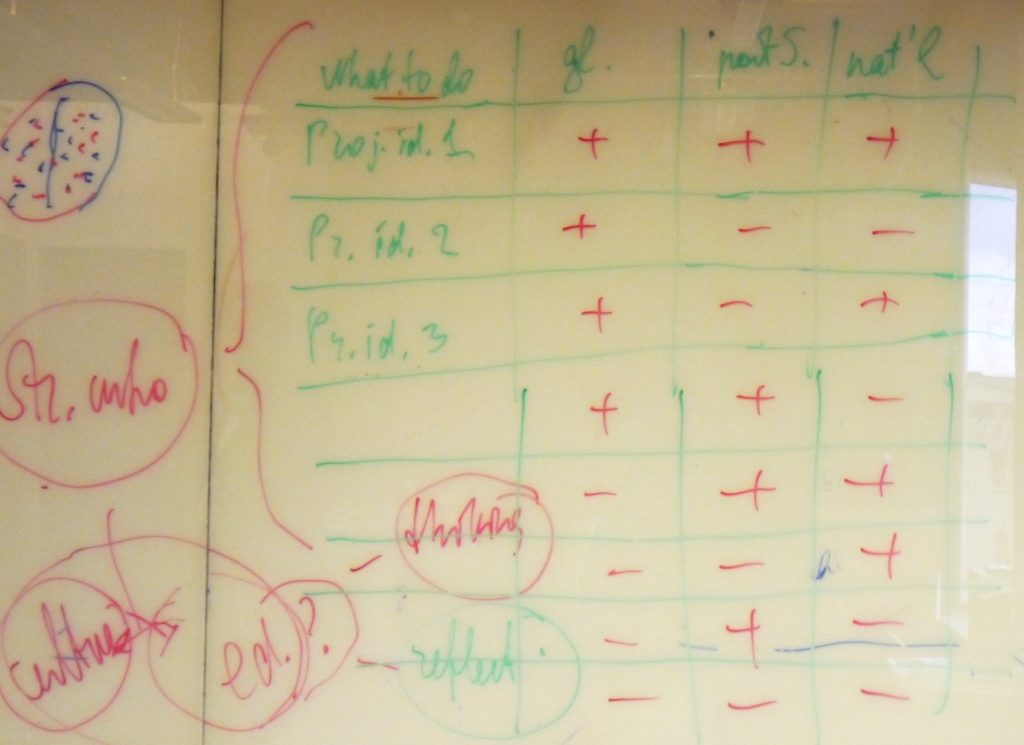 what.to do gl. post S. nat'l
Proj.id.1 + + +
Pr. id. 2 + - -
Pr. id. 3 + - +
Str. who + + -
- + +
thinking
- - +
- + -
culture ed. ?
reflect.
- - -